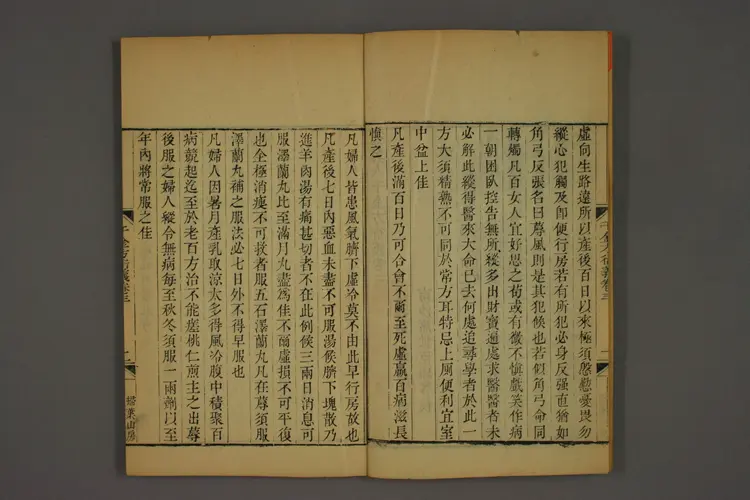 虛向生路遠所以產後百日以來極須慇懃憂畏勿
縱心犯觸及即便行房若有所犯必身反强直猶如
角弓反張名曰蓐風則是其犯候也若似角弓命同
轉燭凡百女人宜好思之苟或有微不慎戲笑作病
一朝困臥控告無所縱多出財寶遍處求醫醫者未
必解此縱得醫來大命已去何處追尋學者於此一
方大須精熟不可同於常方耳特忌上厠便利宜室
中盆上佳
凡產後滿百日乃可合會不爾至死虛羸百病滋長
慎之
凡婦人皆患風氣臍下虛冷莫不由此早行房故也
凡產後七日內惡血未盡不可服湯候臍下塊散乃
進羊肉湯有痛甚切者不在此例候三兩日消息可
服澤蘭丸比至滿月丸盡爲佳不爾虛損不可平復
也全極消瘦不可救者服五石澤蘭丸凡在蓐須服
澤蘭丸補之服法必七日外不得早服也
凡婦人因暑月產乳取涼太多得風冷腹中積聚百
病競起迄至於老百方治不能瘥桃仁煎主之出蓐
後服之婦人縱令無病每至秋冬須服一兩劑以至
年內將常服之佳
千金方衍義卷三
掃葉山房